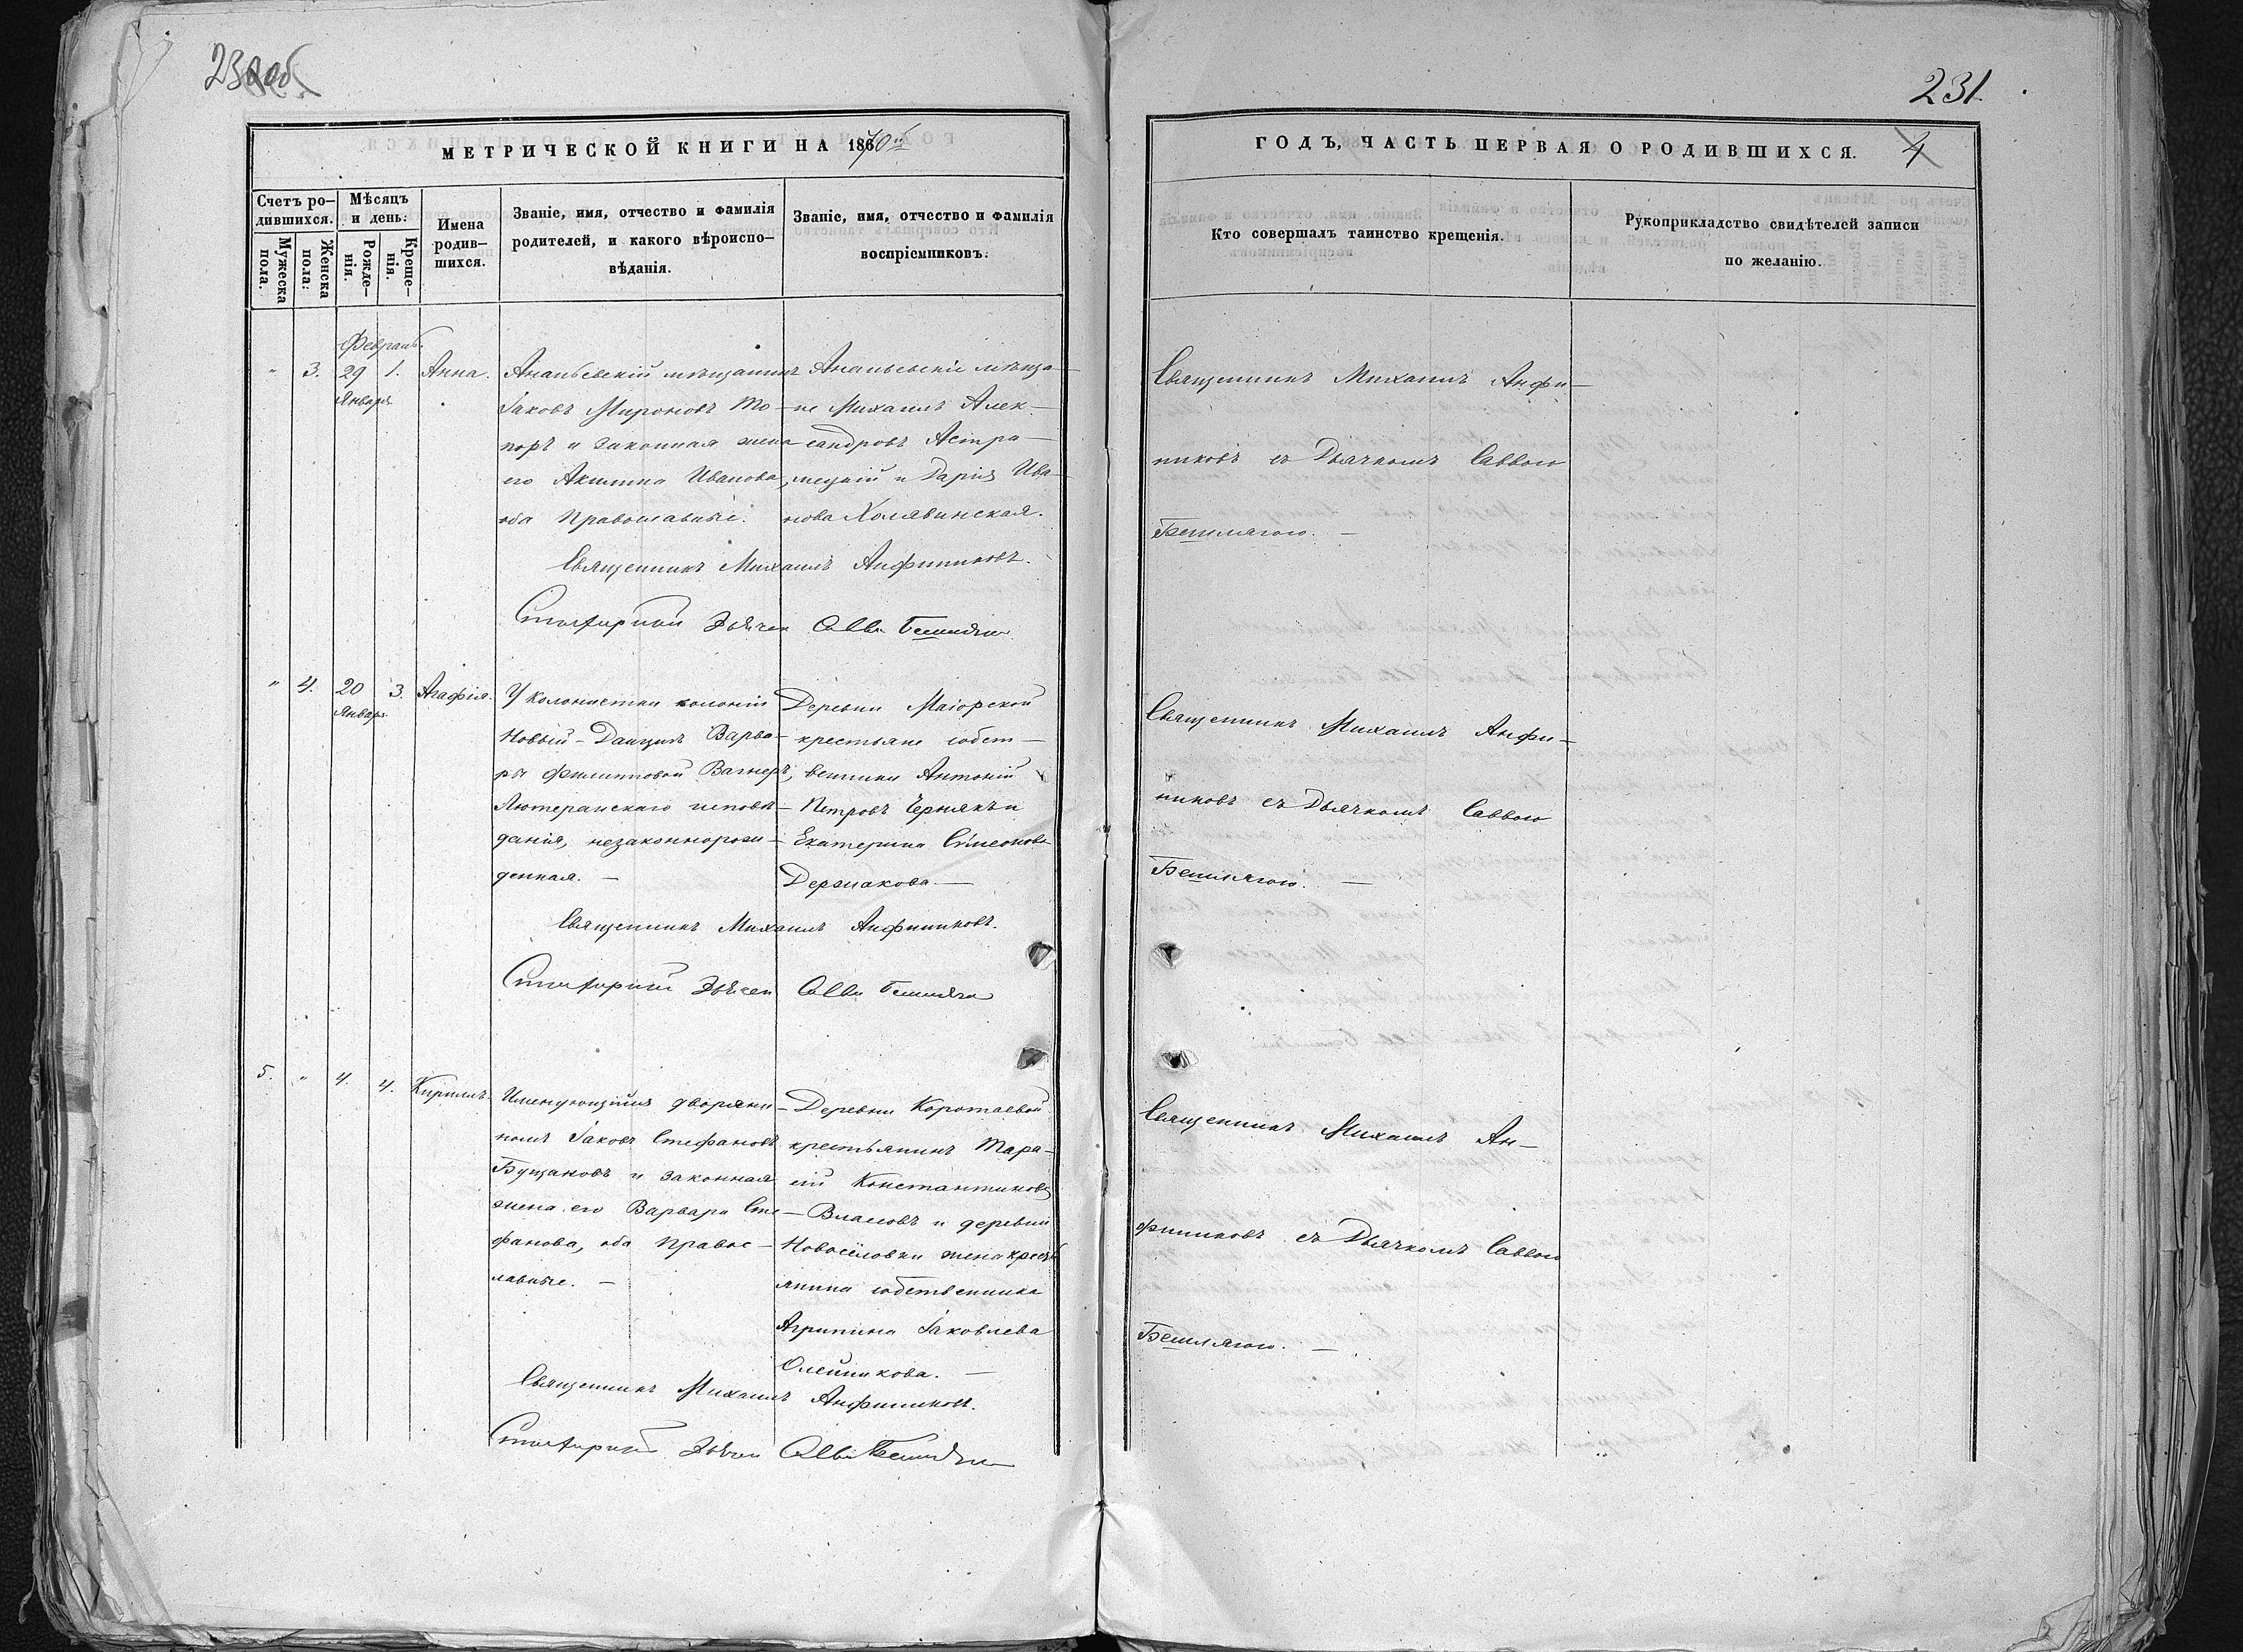 230об.
231.
МЕТРИЧЕСКОЙ КНИГИ НА 1870й
ГОДЪ, ЧАСТЬ ПЕРВАЯ О РОДИВШИХСЯ.
4
Счетъ ро-
дившихся.
Мужеска
пола.
Женска
пола:
Мѣсяцъ
и день:
Рожде-
нія.
Креще-
нія.
Имена
родив-
шихся.
Званіе, имя, отчество и фамилія
родителей, и какого вѣроиспо-
вѣданія.
Званіе, имя, отчество и фамилія
воспріемниковъ.
Кто совершалъ таинство крещенія.
Рукоприкладство свидѣтелей записи
по желанію.
Февраль.
" 3. 29 1. Анна.
Января
Ананьевскій мѣщанинъ
Іаковъ Мироновъ То-
поръ и законная жена
его Акилина Иванова,
оба православные.
Ананьевскіе мѣща-
не Михаилъ Алек-
сандровъ Астра-
мецкій и Дарія Ива-
нова Холявинская.
Священникъ Михаилъ Анфи-
никовъ съ Дьячкомъ Саввою
Бешлягою. —
Священникъ Михаилъ Анфиниковъ.
Стихарный Дьячекъ Савва Бешляга
" 4. 20 3. Агафія.
Января
У колонистки колоніи
Новый-Данцигъ Варва-
ры Филипповой Вагнеръ,
Лютеранскаго исповѣ-
данія, незаконнорож-
денная. —
Деревни Маіорской
крестьяне собст-
венники Антоній
Петровъ Чернякъ и
Екатерина Сѵмеонова
Держакова. —
Священникъ Михаилъ Анфи-
никовъ съ Дьячкомъ Саввою
Бешлягою. —
Священникъ Михаилъ Анфиниковъ.
Стихарный Дьячекъ Савва Бешляга
5. " 4. 4. Кириллъ.
Именующійся дворяни-
номъ Іаковъ Стефановъ
Бущановъ и законная
жена его Варвара Сте-
фанова, оба право-
славные. —
Деревни Коротаевой
крестьянинъ Тара-
сій Константиновъ
Власовъ и деревни
Новосёловки жена кресть-
янина собственника
Агрипина Іаковлева
Олейникова. —
Священникъ Михаилъ Ан-
финиковъ съ Дьячкомъ Саввою
Бешлягою. —
Священникъ Михаилъ Анфиниковъ.
Стихарный Дьячекъ Савва Бешляга